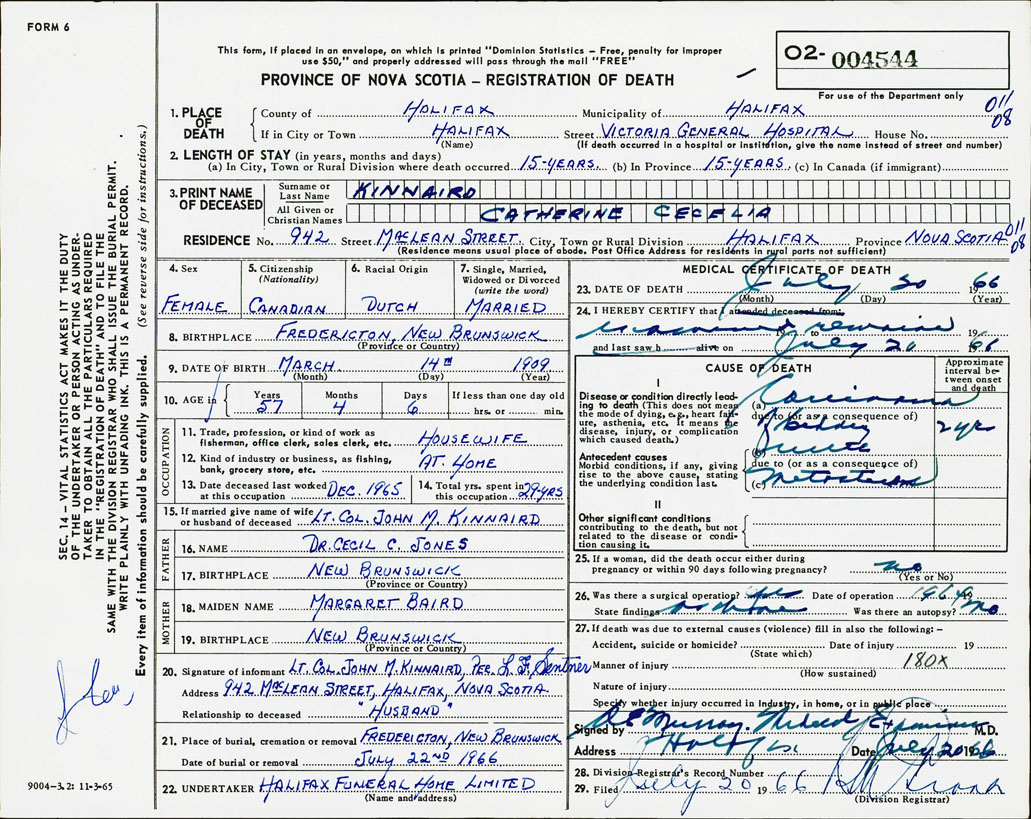 FORM 6
This form, if placed in an envelope, on which is printed "Dominion Statistics – Free, penalty for improper
use $50," and properly addressed will pass through the mail "FREE"
PROVINCE OF NOVA SCOTIA – REGISTRATION OF DEATH
02- 004544
For use of the Department only
1. PLACE OF DEATH
County of HALIFAX Municipality of HALIFAX 011 08
If in City or Town HALIFAX Street VICTORIA GENERAL HOSPITAL House No.
(Name) (If death occurred in a hospital or institution, give the name instead of street and number)
2. LENGTH OF STAY (in years, months and days)
(a) In City, Town or Rural Division where death occurred 15-YEARS. (b) In Province 15-YEARS. (c) In Canada (if immigrant)
3. PRINT NAME OF DECEASED
Surname or Last Name KINNAIRD
All Given or Christian Names CATHERINE CECELIA
RESIDENCE No. 942 Street MACLEAN STREET. City, Town or Rural Division HALIFAX Province NOVA SCOTIA 011 08
(Residence means usual place of abode. Post Office Address for residents in rural parts not sufficient)
4. Sex
FEMALE
5. Citizenship (Nationality)
CANADIAN
6. Racial Origin
DUTCH
7. Single, Married, Widowed or Divorced (write the word)
MARRIED
8. BIRTHPLACE FREDERICTON, NEW BRUNSWICK
(Province or Country)
9. DATE OF BIRTH MARCH 14TH 1909
(Month) (Day) (Year)
10. AGE in Years 57 Months 4 Days 6 If less than one day old
hrs. or min.
OCCUPATION
11. Trade, profession, or kind of work as fisherman, office clerk, sales clerk, etc. HOUSEWIFE
12. Kind of industry or business, as fishing, bank, grocery store, etc. AT HOME
13. Date deceased last worked at this occupation DEC. 1965
14. Total yrs. spent in this occupation 29-YRS
15. If married give name of wife or husband of deceased LT. COL. JOHN M. KINNAIRD
FATHER
16. NAME DR. CECIL C. JONES
17. BIRTHPLACE NEW BRUNSWICK
(Province or Country)
MOTHER
18. MAIDEN NAME MARGARET BAIRD
19. BIRTHPLACE NEW BRUNSWICK
(Province or Country)
20. Signature of informant LT. COL. JOHN M. KINNAIRD, PER. L. F. Sentner
Address 942 MACLEAN STREET, HALIFAX, NOVA SCOTIA
Relationship to deceased "HUSBAND"
21. Place of burial, cremation or removal FREDERICTON, NEW BRUNSWICK
Date of burial or removal JULY 22ND 1966
22. UNDERTAKER HALIFAX FUNERAL HOME LIMITED
(Name and address)
MEDICAL CERTIFICATE OF DEATH
23. DATE OF DEATH July 20 1966
(Month) (Day) (Year)
24. I HEREBY CERTIFY that I attended deceased from
remains 19 to 19
and last saw h alive on July 20 1966
CAUSE OF DEATH
Approximate interval between onset and death
I
Disease or condition directly leading to death (This does not mean the mode of dying, e.g., heart failure, asthenia, etc. It means the disease, injury, or complication which caused death.)
(a) Carcinoma
due to (or as a consequence of)
(b) 2 yrs
Antecedent causes
Morbid conditions, if any, giving rise to the above cause, stating the underlying condition last.
due to (or as a consequence of)
(c)
II
Other significant conditions contributing to the death, but not related to the disease or condition causing it.
25. If a woman, did the death occur either during pregnancy or within 90 days following pregnancy? no
(Yes or No)
26. Was there a surgical operation? yes Date of operation 1964 19
State findings as above Was there an autopsy? no
27. If death was due to external causes (violence) fill in also the following: –
Accident, suicide or homicide? Date of injury 19
(State which)
Manner of injury 180X
(How sustained)
Nature of injury
Specify whether injury occurred in Industry, in home, or in public place
Signed by Murray. Medical Examiner M.D.
Address Halifax Date July 20 1966
28. Division Registrar's Record Number
29. Filed July 20 1966
(Division Registrar)
SEC. 14 – VITAL STATISTICS ACT MAKES IT THE DUTY
OF THE UNDERTAKER OR PERSON ACTING AS UNDER-
TAKER TO OBTAIN ALL THE PARTICULARS REQUIRED
IN THE "REGISTRATION OF DEATH" AND TO FILE THE
SAME WITH THE DIVISION REGISTRAR WHO SHALL ISSUE THE BURIAL PERMIT.
WRITE PLAINLY WITH UNFADING INK. THIS IS A PERMANENT RECORD.
Every item of information should be carefully supplied. (See reverse side for instructions.)
9004-3.2: 11-3-65